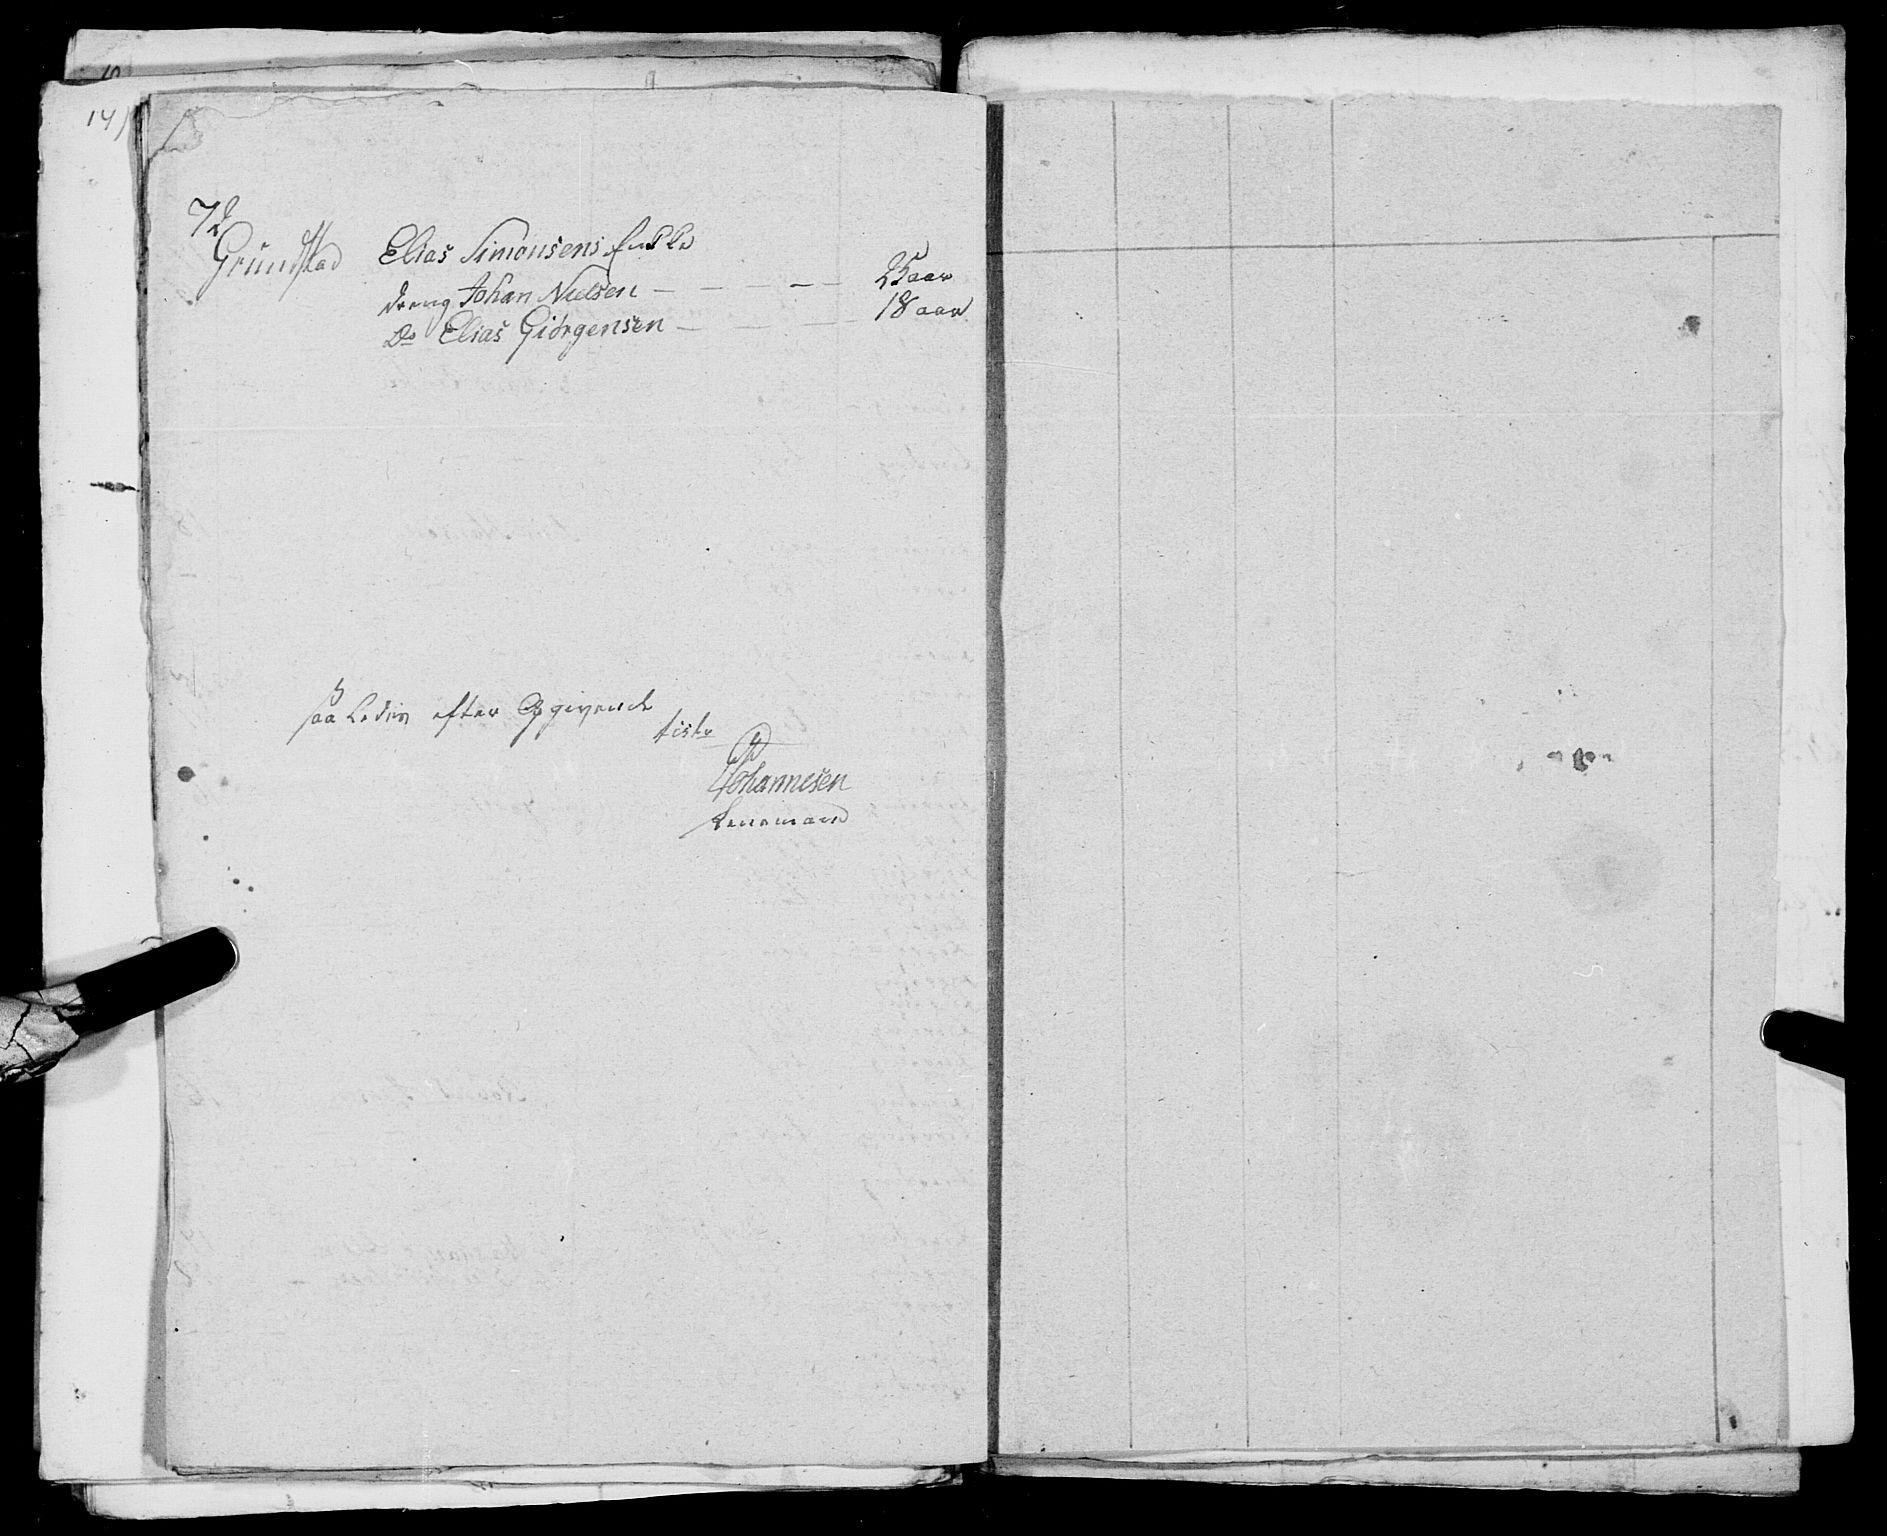 72
Grundstad Elias Simonsens Enkke
dreng Johan Nielsen — — — — — 25 aar
Do Elias Giørgensen — — — — 18 aar
saaledes efter Opgivende
Johannesen
Lensmand